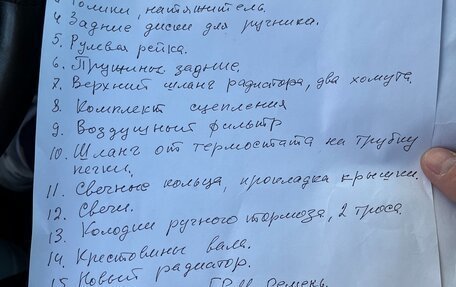 Ролики, натяжитель.
4 Задние диски для ручника.
5. Рулевая рейка.
6. Пружины задние
7. Верхний шланг радиатора, два хомута.
8. Комплект сцепления
9. Воздушный фильтр
10. Шланг от термостата на трубку
печки.
11. Свечные кольца, прокладка крышки.
12. Свечи.
13. Колодки ручного тормоза, 2 троса.
14. Крестовины вала.
15. Новый радиатор.
ГРМ Ремень.